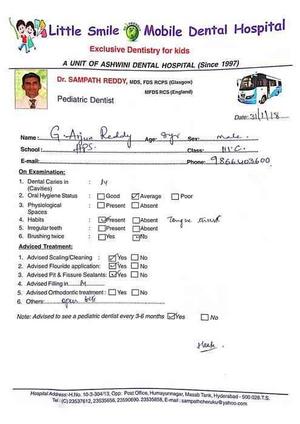 Little Smile Mobile Dental Hospital
Exclusive Dentistry for kids
A UNIT OF ASHWINI DENTAL HOSPITAL (Since 1997)
Dr. SAMPATH REDDY, MDS, FDS RCPS (Glasgow)
MFDS RCS (England)
Pediatric Dentist
Date: 31/1/18
Name: G. Arjun Reddy Age: 8yr Sex: male
School: HPS. Class: III C.
E-mail: Phone: 9866403600
On Examination:
1. Dental Caries in (Cavities)
2. Oral Hygiene Status : Good Average Poor
3. Physiological Spaces : Present Absent
4. Habits : Present Absent Tongue thrust
5. Irregular teeth : Present Absent
6. Brushing twice : Yes No
Advised Treatment:
1. Advised Scaling/Cleaning : Yes No
2. Advised Flouride application: Yes No
3. Advised Pit & Fissure Sealants: Yes No
4. Advised Filling in
5. Advised Orthodontic treatment : Yes No
6. Others: open bite
Note: Advised to see a pediatric dentist every 3-6 months Yes No
Hospital Address: H.No. 10-3-304/13, Opp. Post Office, Humayunnagar, Masab Tank, Hyderabad - 500 028.T.S.
Tel: (C) 23537612, 23535858, 23590690. 23535858, E-mail : sampathcheruku@yahoo.com